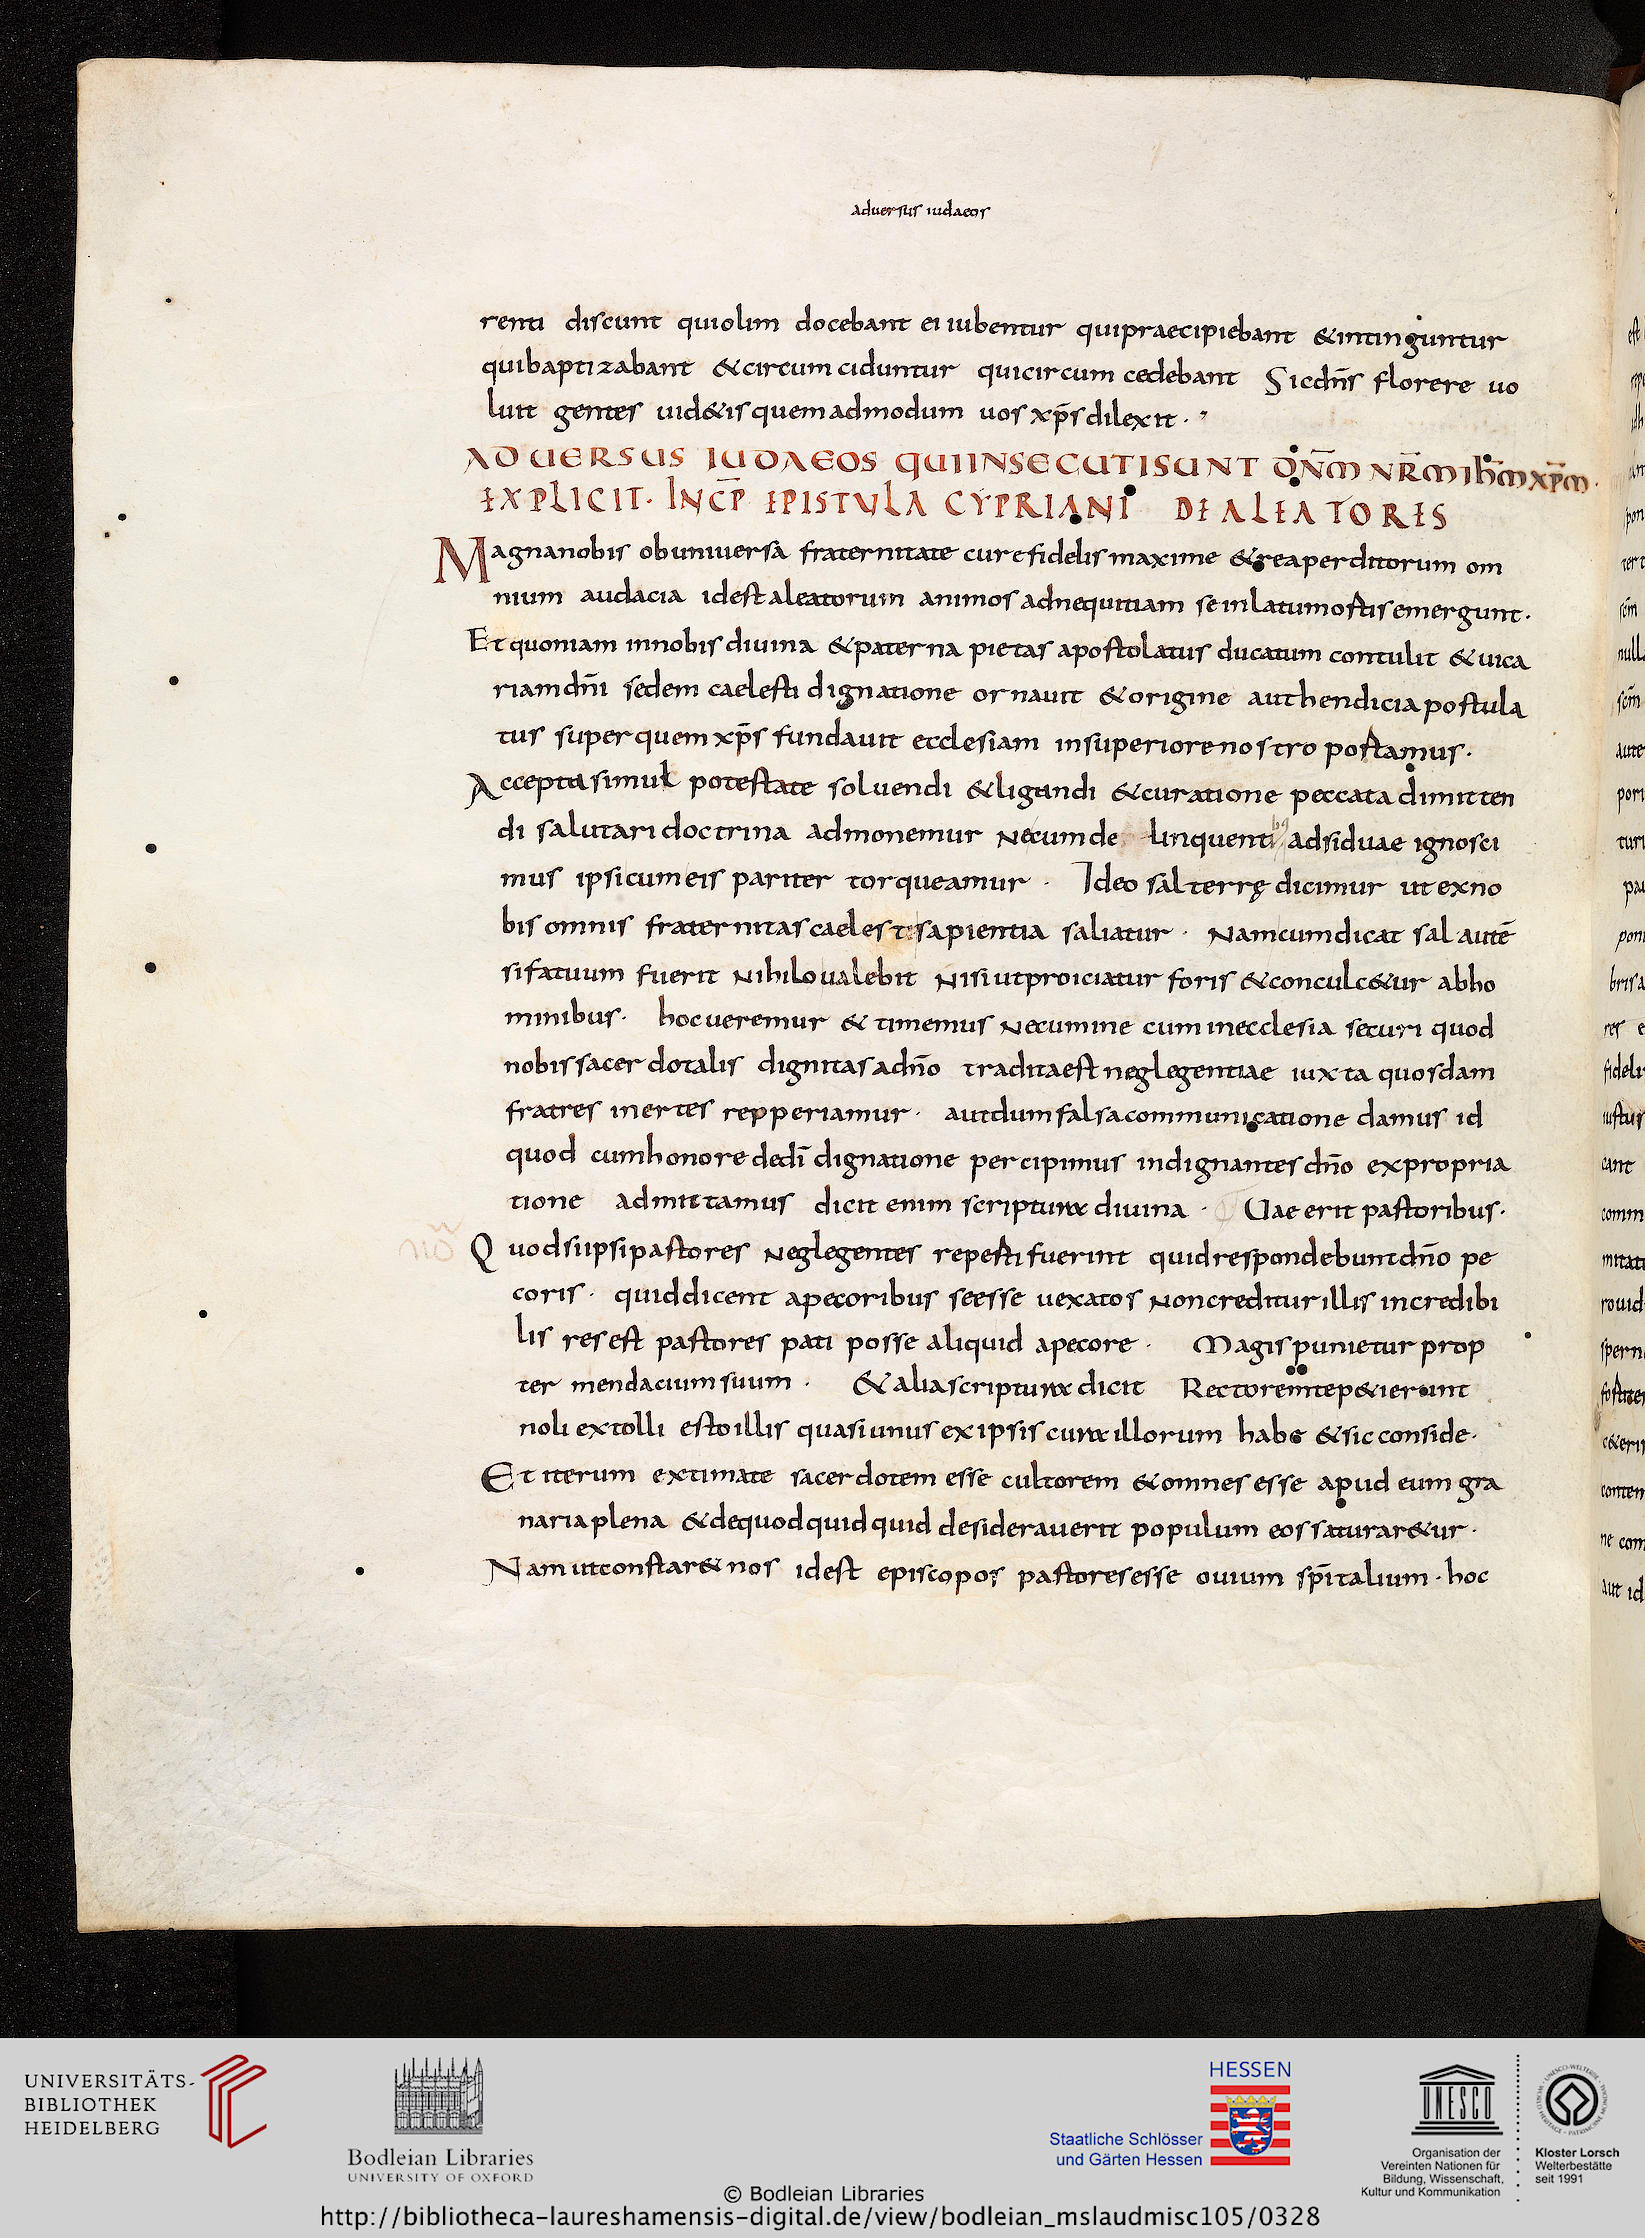 aduersus iudaeos
renti discunt qui olim docebant ei iubentur qui praecipiebant & intinguntur
qui baptizabant & circumciduntur qui circumcedebant Sic dn̄s florere uo
luit gentes uid&is quemadmodum uos xp̄s dilexit·
ADUERSUS IUDAEOS QUI INSECUTI SUNT DN̄M NR̄M IH̄M XP̄M·
EXPLICIT· INCP̄ EPISTULA CYPRIANI DE ALEATORES
Magna nobis ob uniuersa fraternitate cure fidelis maxime & rea perditorum om
nium audacia id est aleatorum animos ad nequitiam se in latum ostis emergunt·
Et quoniam in nobis diuina & paterna pietas apostolatus ducatum contulit & uica
riam dn̄i sedem caelesti dignatione ornauit & origine authendici apostula
tus super quem xp̄s fundauit ecclesiam in superiore nostro postamus·
Accepta simul potestate soluendi & ligandi & curatione peccata dimitten
di salutari doctrina admonemur necum de linquenti adsiduae ignosci
mus ipsi cum eis pariter torqueamur · Ideo sal terrę dicimur ut ex no
bis omnis fraternitas caeleste sapientia saliatur · Nam cum dicat sal autē
si fatuum fuerit nihilo ualebit nisi ut proiciatur foris & conculc&ur ab ho
minibus· hoc ueremur & timemus necumine cum in ecclesia securi quod
nobis sacerdotalis dignitas a dn̄o tradita est neglegentiae iuxta quosdam
fratres inertes repperiamur· aut dum falsa communicatione damus id
quod cum honore dedī dignatione percipimus indignantes dn̄o expropria
tione admittamus dicit enim scriptura diuina · Uae erit pastoribus·
Quod si ipsi pastores neglegentes repesti fuerint quid respondebunt dn̄o pe
coris· quid dicent a pecoribus se esse uexatos non creditur illis incredibi
lis res est pastores pati posse aliquid a pecore · Magis punietur prop
ter mendacium suum · & alia scriptura dicit Rectorem te p&ierunt
noli extolli esto illis quasi unus ex ipsis cura illorum habe & sic conside·
Et iterum extimate sacerdotem esse cultorem & omnes esse apud eum gra
naria plena & de quo d quid quid desiderauerit populum eos saturar&ur·
Nam ut constar& nos id est episcopos pastores esse ouium sp̄italium · hoc
UNIVERSITÄTS-
BIBLIOTHEK
HEIDELBERG
Bodleian Libraries
UNIVERSITY OF OXFORD
Staatliche Schlösser
und Gärten Hessen
HESSEN
UNESCO
Organisation der
Vereinten Nationen für
Bildung, Wissenschaft,
Kultur und Kommunikation
Kloster Lorsch
Welterbestätte
seit 1991
© Bodleian Libraries
http://bibliotheca-laureshamensis-digital.de/view/bodleian_mslaudmisc105/0328